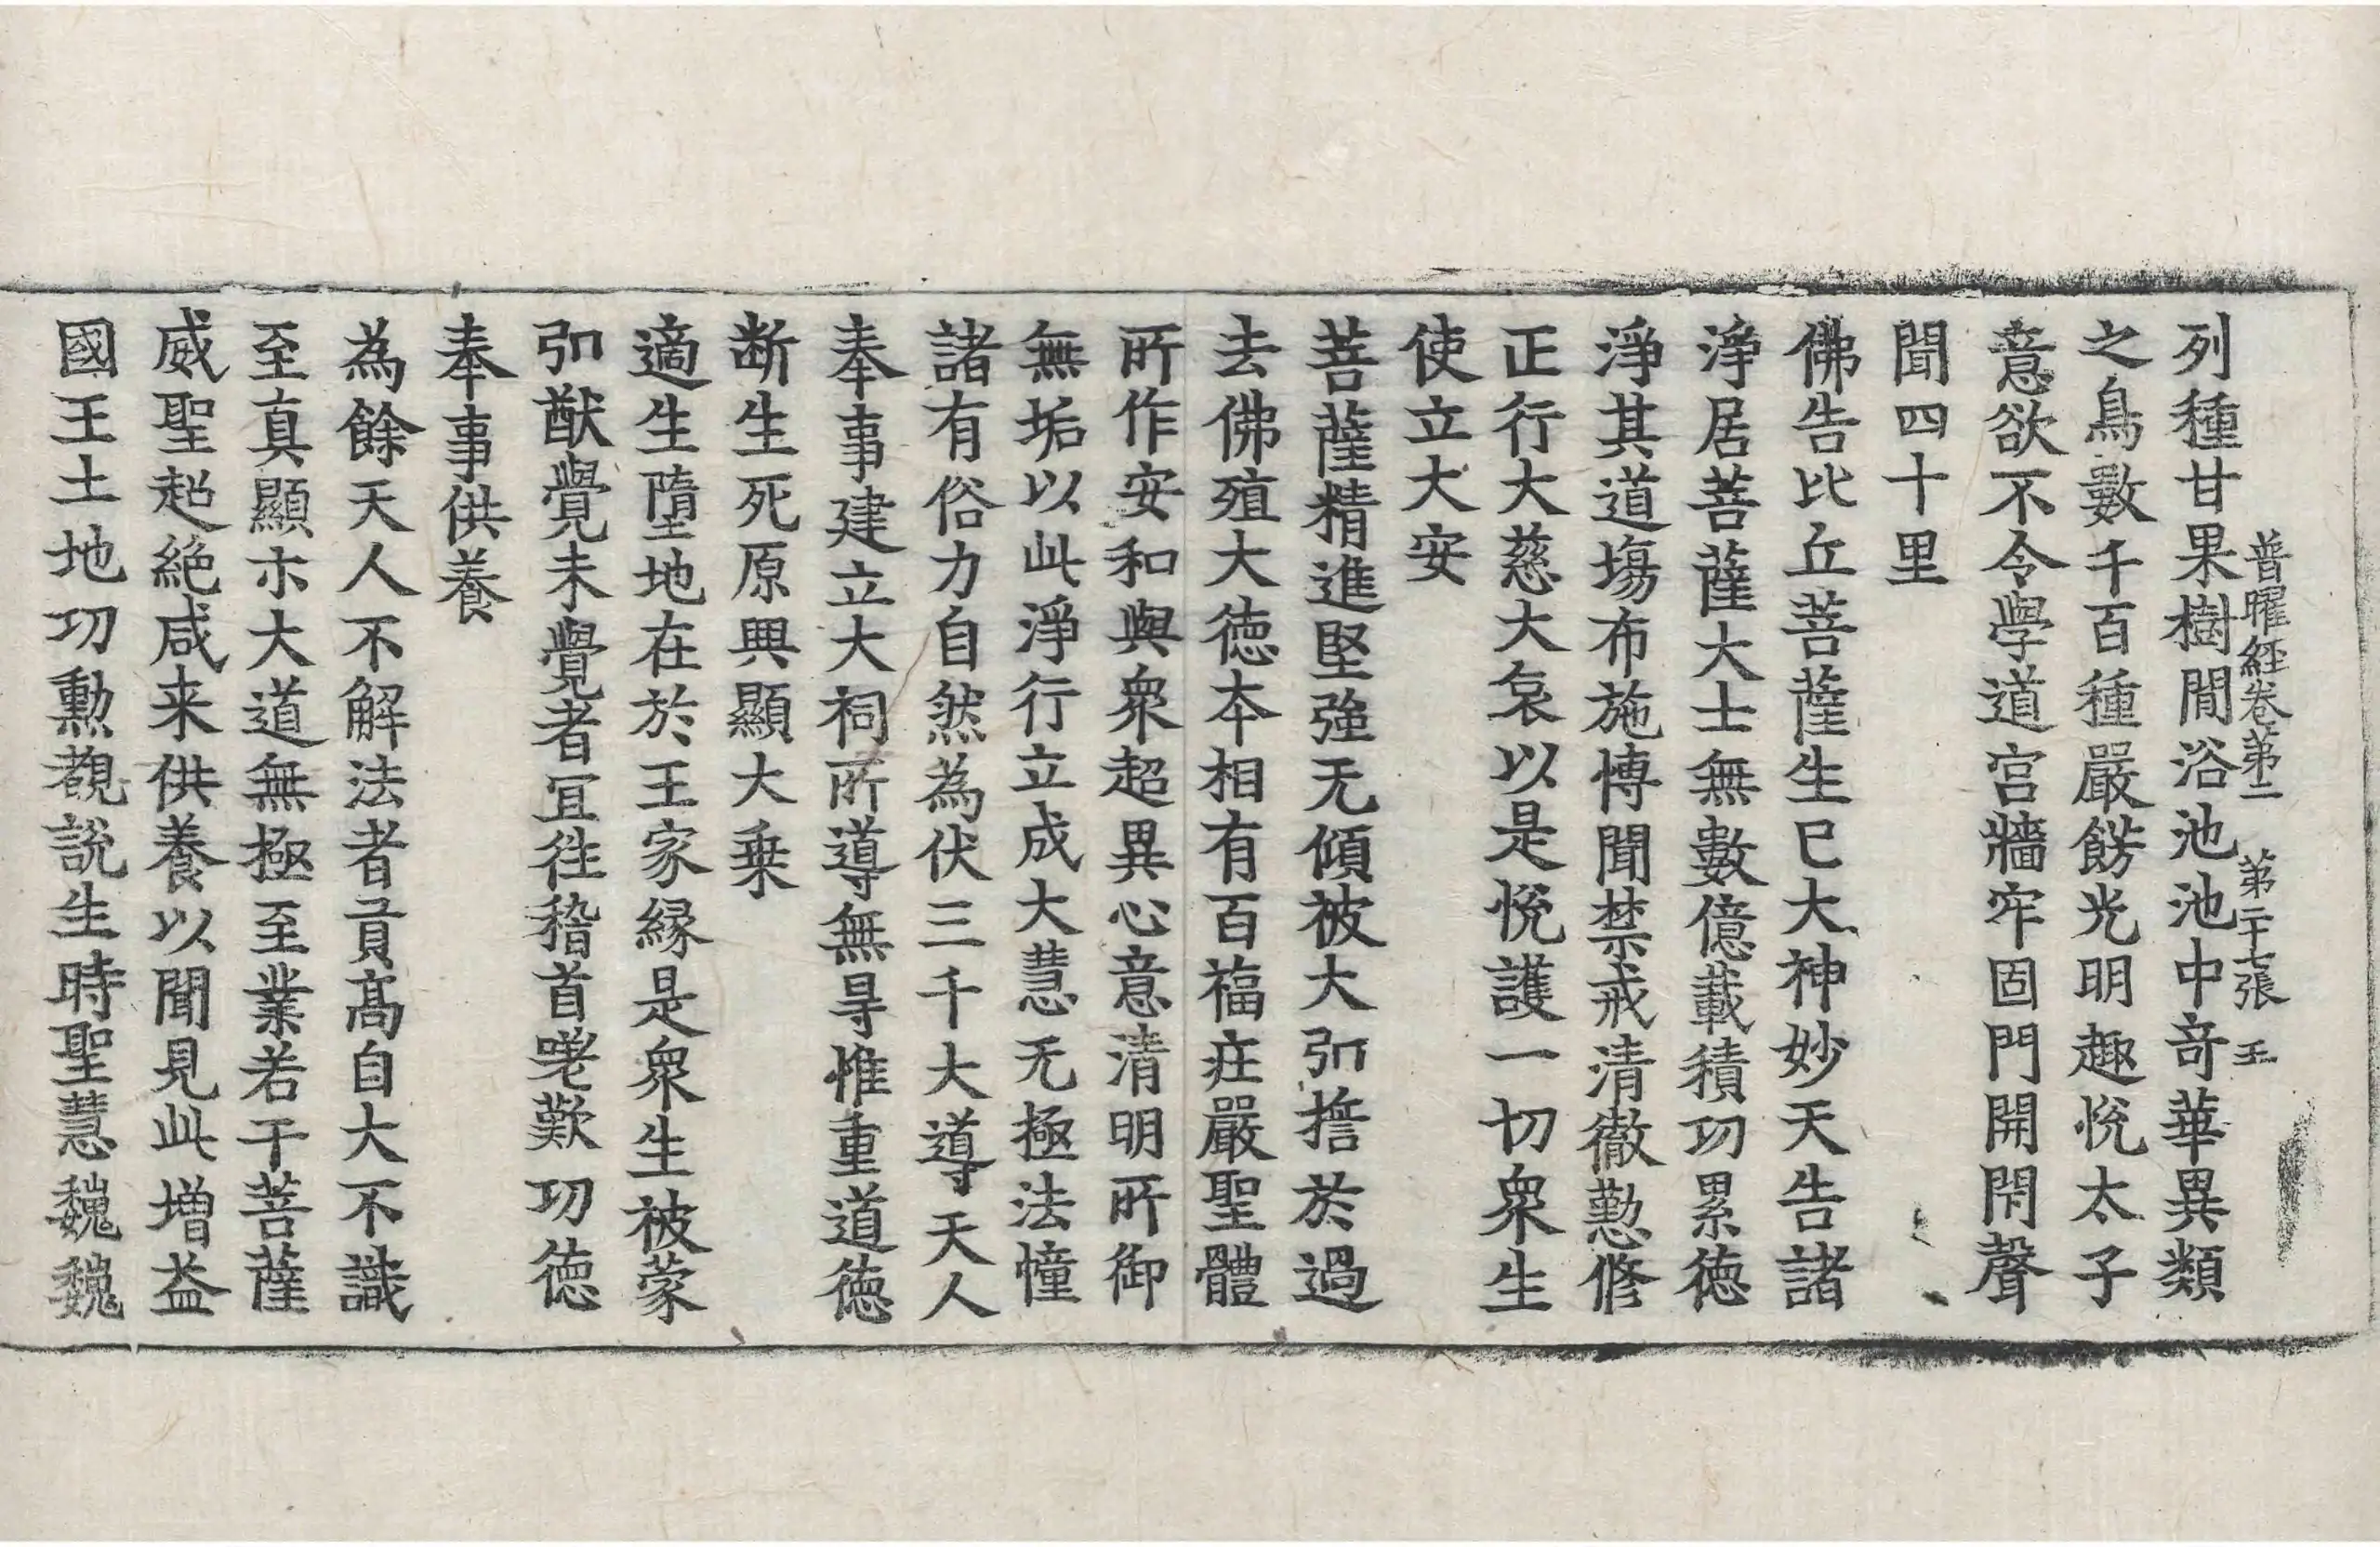 列種甘果樹閒浴池池中竒華異類
普曜經卷苐二　苐二十七張　王
之鳥數千百種嚴餝光明趣恱太子
意欲不令學道宫牆牢固門開閇聲
聞四十里
佛告比丘菩薩生已大神妙天告諸
淨居菩薩大士無數億載積功累德
淨其道塲布施博聞禁戒清徹懃修
正行大慈大哀以是恱護一切衆生
使立大安
菩薩精進堅強无傾被大弘誓於過
去佛殖大德夲相有百福庄嚴聖體
所作安和與衆超異心意清明所御
無垢以此淨行立成大慧无極法幢
諸有俗力自然為伏三千大導天人
奉事建立大祠所導無㝵惟重道德
断生死原興顯大乗
適生墮地在於王家縁是衆生被蒙
弘猷覺未覺者冝徃稽首咾歎功德
奉事供養
為餘天人不解法者貢髙自大不識
至真顯示大道無極至業若干菩薩
威聖超絶咸来供養以聞見此增益
國王土地功勲觀說生時聖慧巍巍